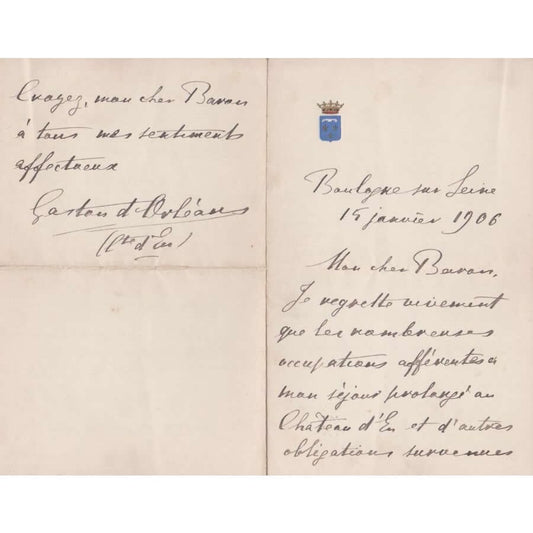 Boulogne sur Seine
15 janvier 1906
Mon cher Baron,
Je regrette vivement
que les nombreuses
occupations afférentes à
mon séjour prolongé au
Château d'Eu et d'autres
obligations survenues
Croyez, mon cher Baron
à tous mes sentiments
affectueux
Gaston d'Orléans
(Cte d'Eu)